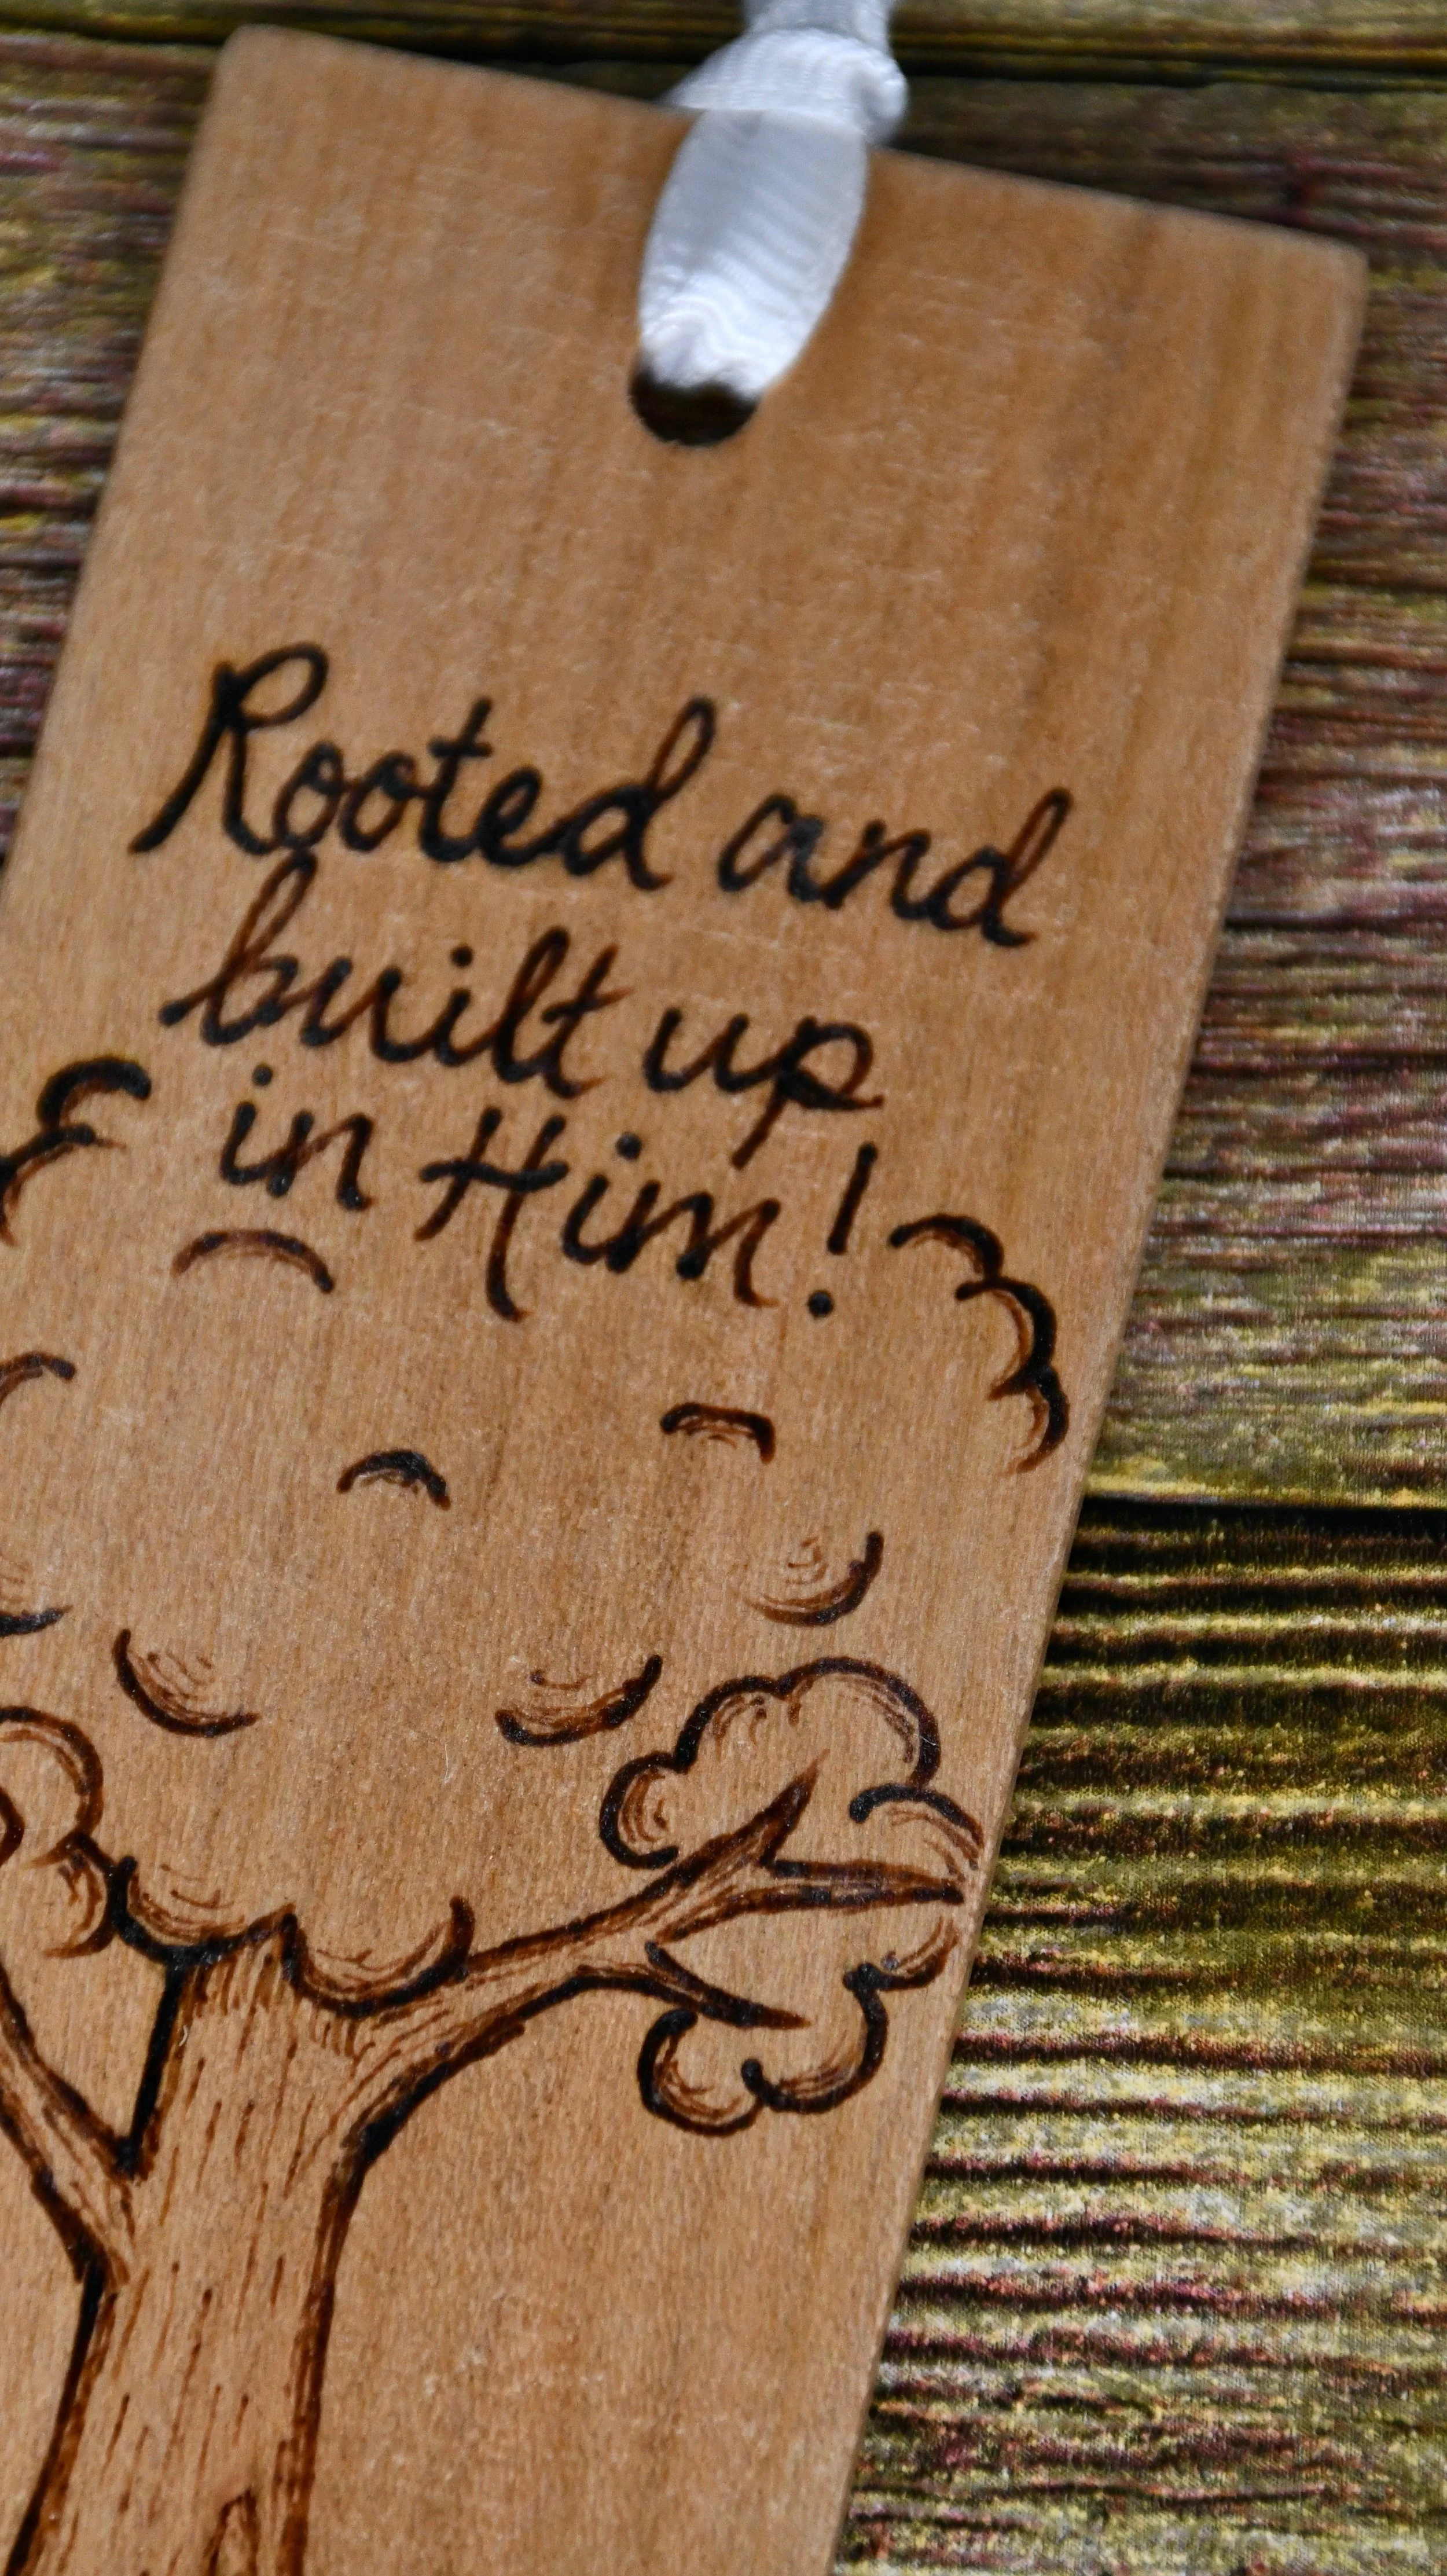 Rooted and
built up
in Him!